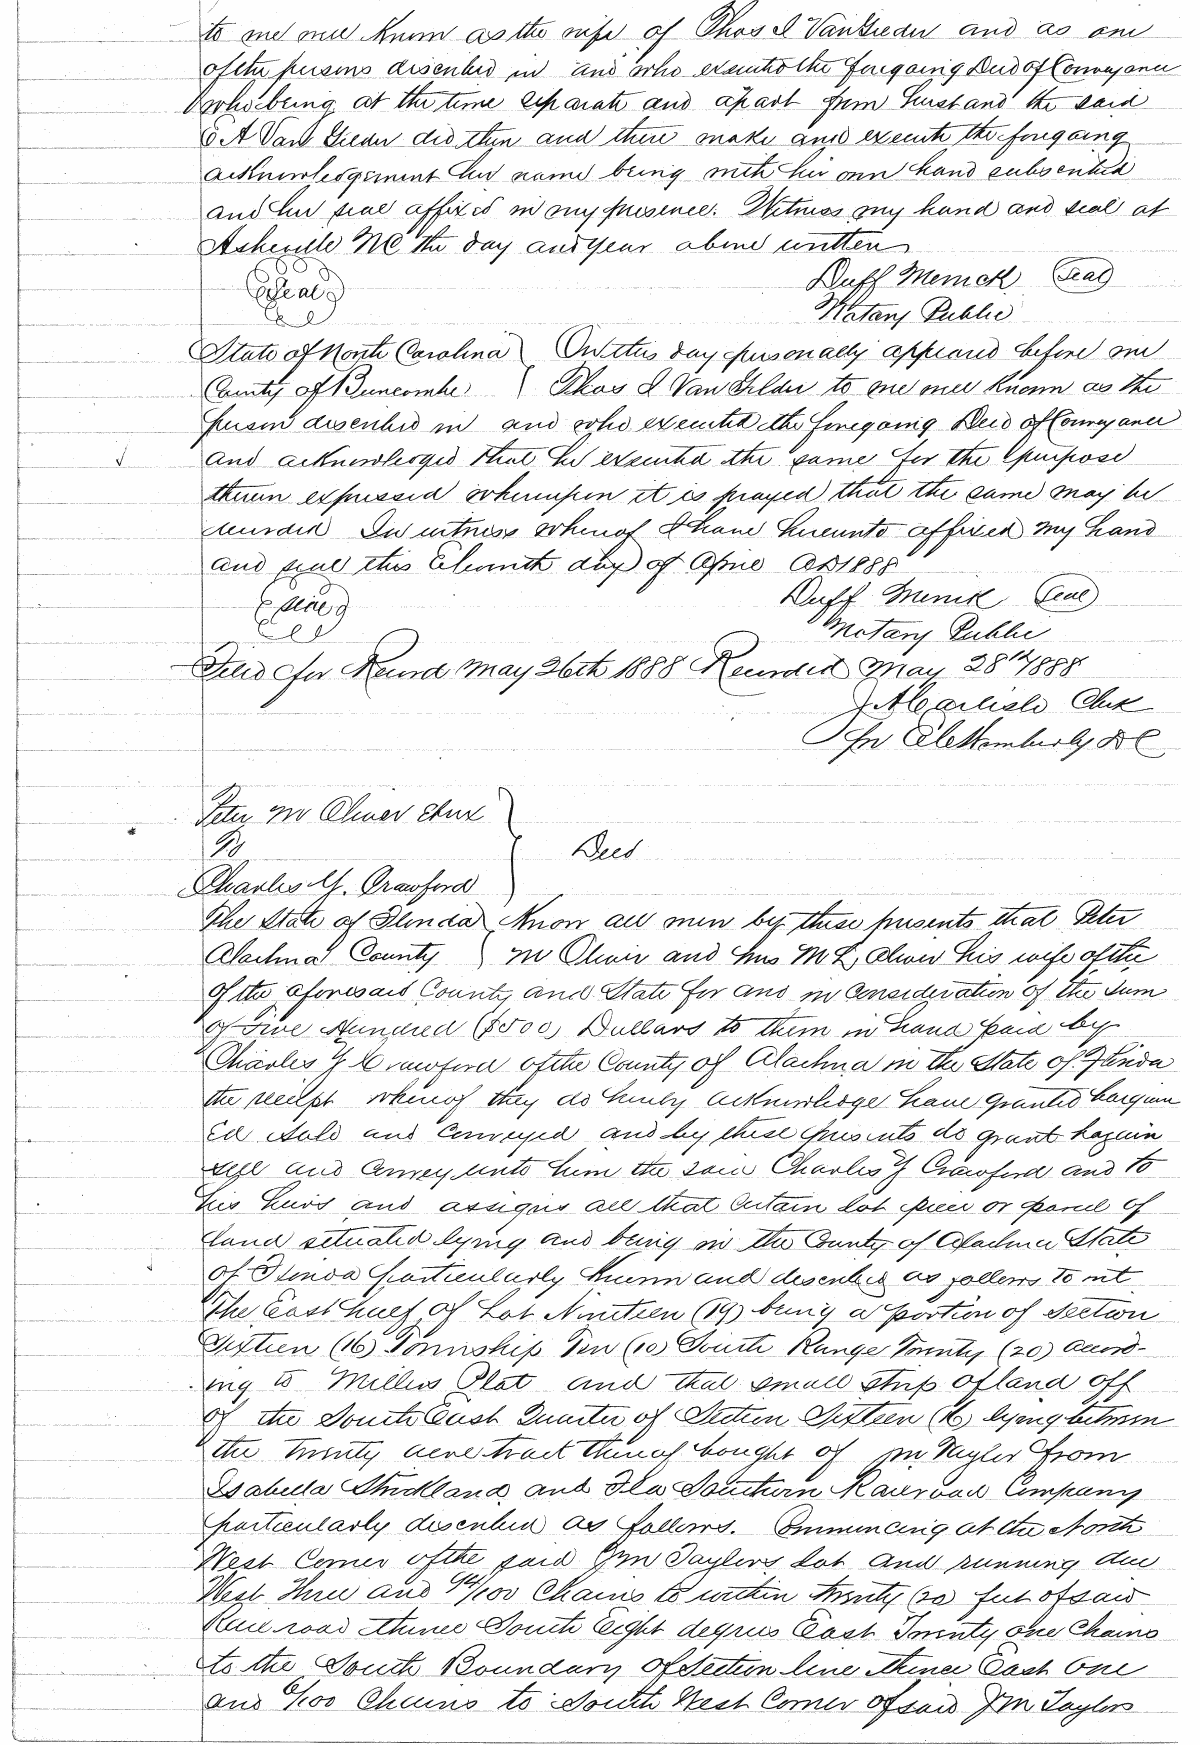 to me well known as the wife of Thos I VanGieder and as one
of the persons described in and who executed the foregoing Deed of Conveyance
who being at the time separate and apart from husband the said
A Van Gieder did then and there make and execute the foregoing
acknowledgement her name being with her own hand subscribed
and her seal affixed in my presence. Witness my hand and seal at
Asheville NC the day and year above written
Duff Merrick (Seal)
(Seal)
Notary Public
State of North Carolina On this day personally appeared before me
County of Buncombe Thos I Van Gilder to me well known as the
person described in and who executed the foregoing Deed of Conveyance
and acknowledged that he executed the same for the purpose
therein expressed whereupon it is prayed that the same may be
recorded In witness whereof I have hereunto affixed my hand
and seal this Eleventh day of April AD 1888
Duff Merrick (Seal)
(Seal)
Notary Public
Filed for Record May 26th 1888 Recorded May 28th 1888
J A Carlisle Clerk
DC
Peter M Oliver Et ux
To
Deed
Charles Y. Crawford
The State of Florida Know all men by these presents that Peter
Alachua County M Oliver and Mrs M L Oliver his wife of the
of the aforesaid County and State for and in consideration of the sum
of Five Hundred ($500) Dollars to them in hand paid by
Charles Y Crawford of the County of Alachua in the State of Florida
the receipt whereof they do hereby acknowledge have granted bargain
ed Sold and Conveyed and by these presents do grant bargain
sell and Convey unto him the said Charles Y Crawford and to
his heirs and assigns all that certain lot piece or parcel of
land situated lying and being in the County of Alachua State
of Florida particularly known and described as follows to wit
The East half of Lot Nineteen (19) being a portion of Section
Sixteen (16) Township Ten (10) South Range Twenty (20) accord-
ing to Millers Plat and that small strip of land off
of the South East Quarter of Section Sixteen (16) lying between
the twenty acre tract thereof bought of Jm Taylor from
Isabella Strickland and Fla Southern Railroad Company
particularly described as follows. Commencing at the North
West Corner of the said Jm Taylors lot and running due
West Three and /100 Chains to within twenty (20) feet of said
Rail road thence South Eight degrees East Twenty one Chains
to the South Boundary of Section line thence East one
and /100 Chains to South West Corner of said Jm Taylors